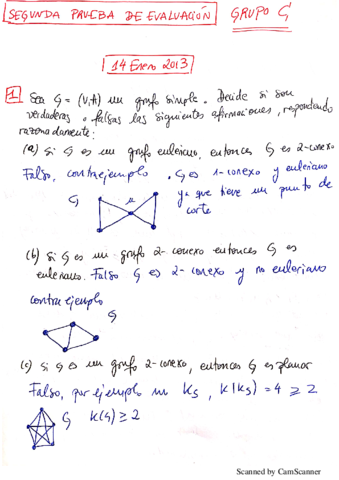 SEGUNDA PRUEBA DE EVALUACIÓN GRUPO G
14 Enero 2013
1 Sea G = (V,A) un grafo simple. Decide si son
verdaderas o falsas las siguientes afirmaciones, respondiendo
razonadamente:
(a) si G es un grafo euleriano, entonces G es 2-conexo
Falso, contraejemplo. G es 1-conexo y euleriano
G u ya que tiene un punto de
corte
(b) si G es un grafo 2-conexo entonces G es
euleriano. Falso G es 2-conexo y no euleriano
contraejemplo
G
(c) si G es un grafo 2-conexo, entonces G es planar
Falso, por ejemplo un K5, K(K5) = 4 ≥ 2
G K(G) ≥ 2
Scanned by CamScanner